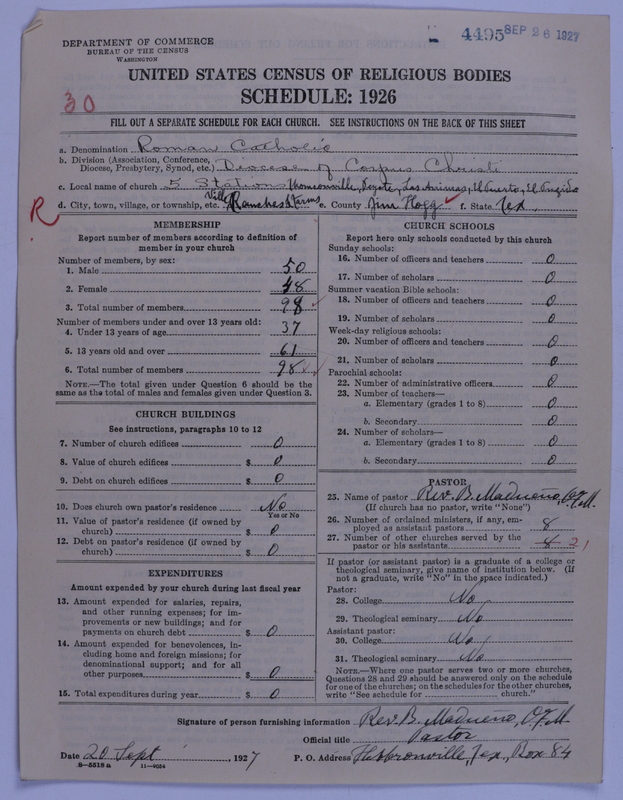 4495 SEP 26 1927
DEPARTMENT OF COMMERCE
BUREAU OF THE CENSUS
WASHINGTON
UNITED STATES CENSUS OF RELIGIOUS BODIES
SCHEDULE: 1926
30
FILL OUT A SEPARATE SCHEDULE FOR EACH CHURCH. SEE INSTRUCTIONS ON THE BACK OF THIS SHEET
a. Denomination Roman Catholic
b. Division (Association, Conference,
Diocese, Presbytery, Synod, etc.) Diocese of Corpus Christi
c. Local name of church 5 Stations Thomsonville, Peyote, Las Animas, El Puerto, El
R
d. City, town, village, or township, etc. Vill. Ranches & Farms e. County Jim Hogg f. State Tex.
MEMBERSHIP
Report number of members according to definition of
member in your church
Number of members, by sex:
1. Male 50
2. Female 48
3. Total number of members 98
Number of members under and over 13 years old:
4. Under 13 years of age 37
5. 13 years old and over 61
6. Total number of members 98
NOTE.—The total given under Question 6 should be the
same as the total of males and females given under Question 3.
CHURCH BUILDINGS
See instructions, paragraphs 10 to 12
7. Number of church edifices 0
8. Value of church edifices $ 0
9. Debt on church edifices $ 0
10. Does church own pastor's residence No
Yes or No
11. Value of pastor's residence (if owned by
church) $ 0
12. Debt on pastor's residence (if owned by
church) $ 0
EXPENDITURES
Amount expended by your church during last fiscal year
13. Amount expended for salaries, repairs,
and other running expenses; for im-
provements or new buildings; and for
payments on church debt $ 0
14. Amount expended for benevolences, in-
cluding home and foreign missions; for
denominational support; and for all
other purposes $ 0
15. Total expenditures during year $ 0
CHURCH SCHOOLS
Report here only schools conducted by this church
Sunday schools:
16. Number of officers and teachers 0
17. Number of scholars 0
Summer vacation Bible schools:
18. Number of officers and teachers 0
19. Number of scholars 0
Week-day religious schools:
20. Number of officers and teachers 0
21. Number of scholars 0
Parochial schools:
22. Number of administrative officers 0
23. Number of teachers—
a. Elementary (grades 1 to 8) 0
b. Secondary 0
24. Number of scholars—
a. Elementary (grades 1 to 8) 0
b. Secondary 0
PASTOR
25. Name of pastor Rev. B. Madueño, O.F.M.
(If church has no pastor, write "None")
26. Number of ordained ministers, if any, em-
ployed as assistant pastors 8
27. Number of other churches served by the
pastor or his assistants 8 21
If pastor (or assistant pastor) is a graduate of a college or
theological seminary, give name of institution below. (If
not a graduate, write "No" in the space indicated.)
Pastor:
28. College No
29. Theological seminary No
Assistant pastor:
30. College No
31. Theological seminary No
NOTE.—Where one pastor serves two or more churches,
Questions 28 and 29 should be answered only on the schedule
for one of the churches; on the schedules for the other churches,
write "See schedule for church."
Signature of person furnishing information Rev. B. Madueño, O.F.M.
Official title Pastor
Date 20 Sept, 1927 P. O. Address Hebbronville, Tex., Box 84
8—5518 a 11—9054